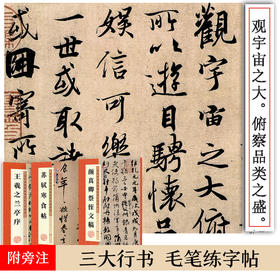 观宇宙之大。俯察品类之盛。
觀宇宙之大
所以遊目騁懷
娛信可樂
一世或取諸
或因寄所
王羲之兰亭序
苏轼寒食帖
颜真卿祭侄文稿
附旁注
三大行书 毛笔练字帖